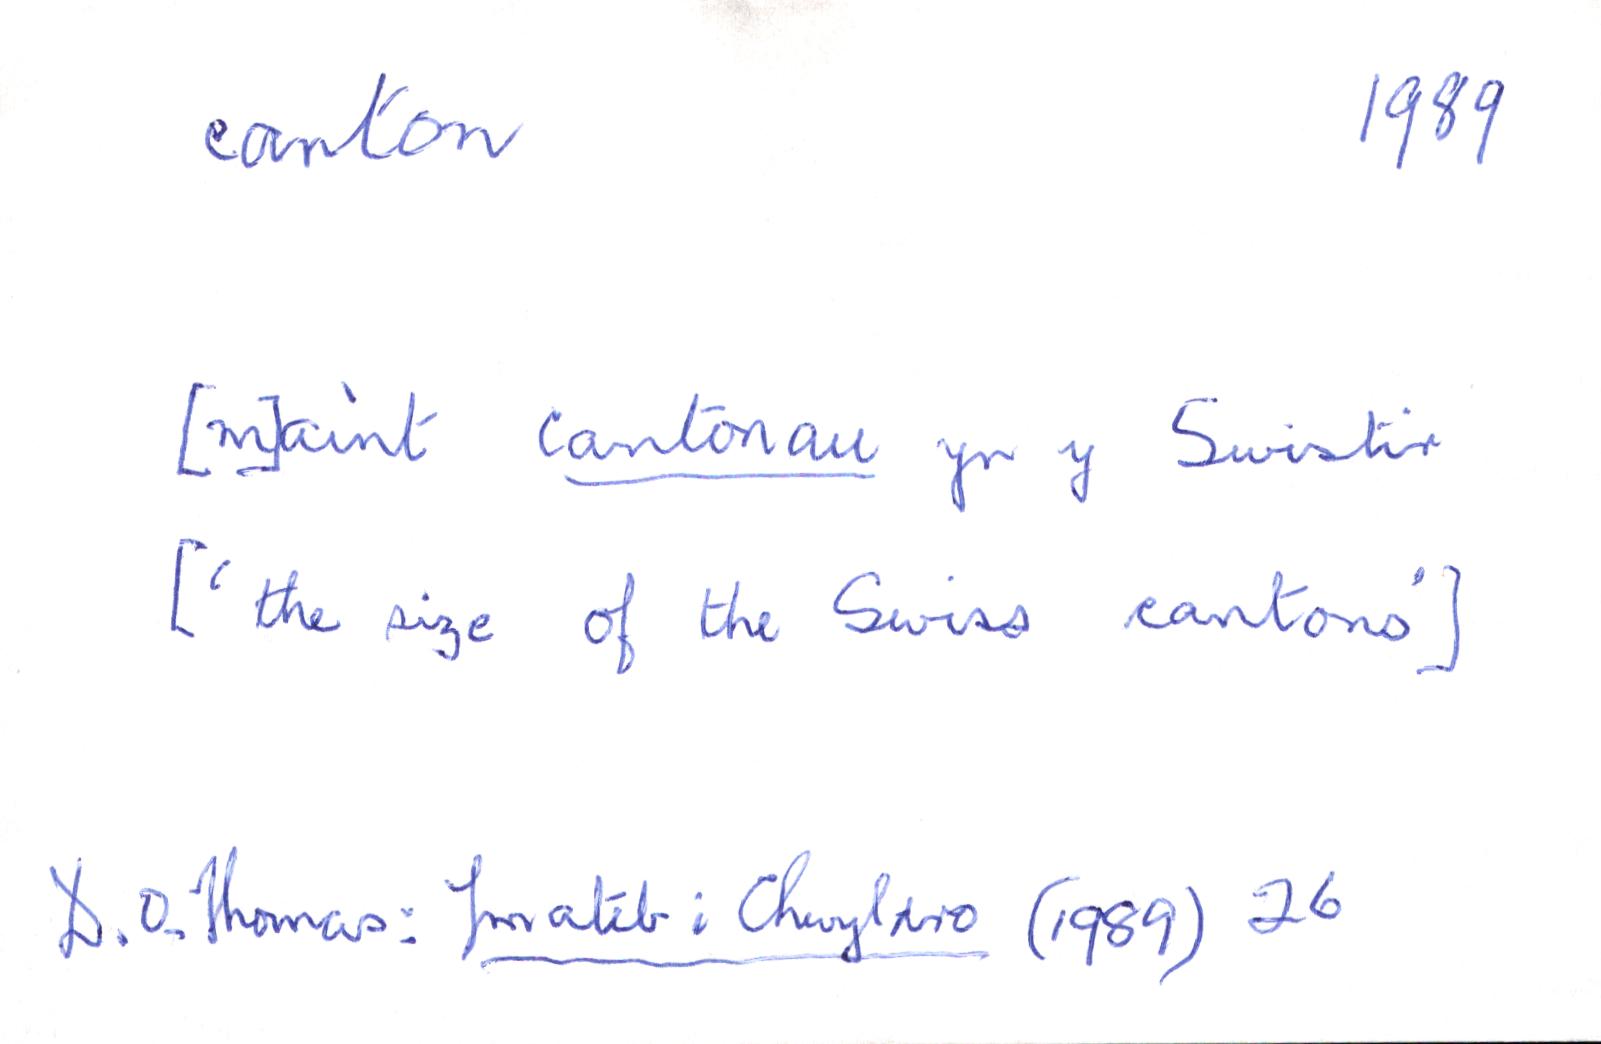 canton 1989
[m]aint cantonau yn y Swistir
[‘the size of the Swiss cantons’]
D. O. Thomas: Ymateb i Chwyldro (1989) 26